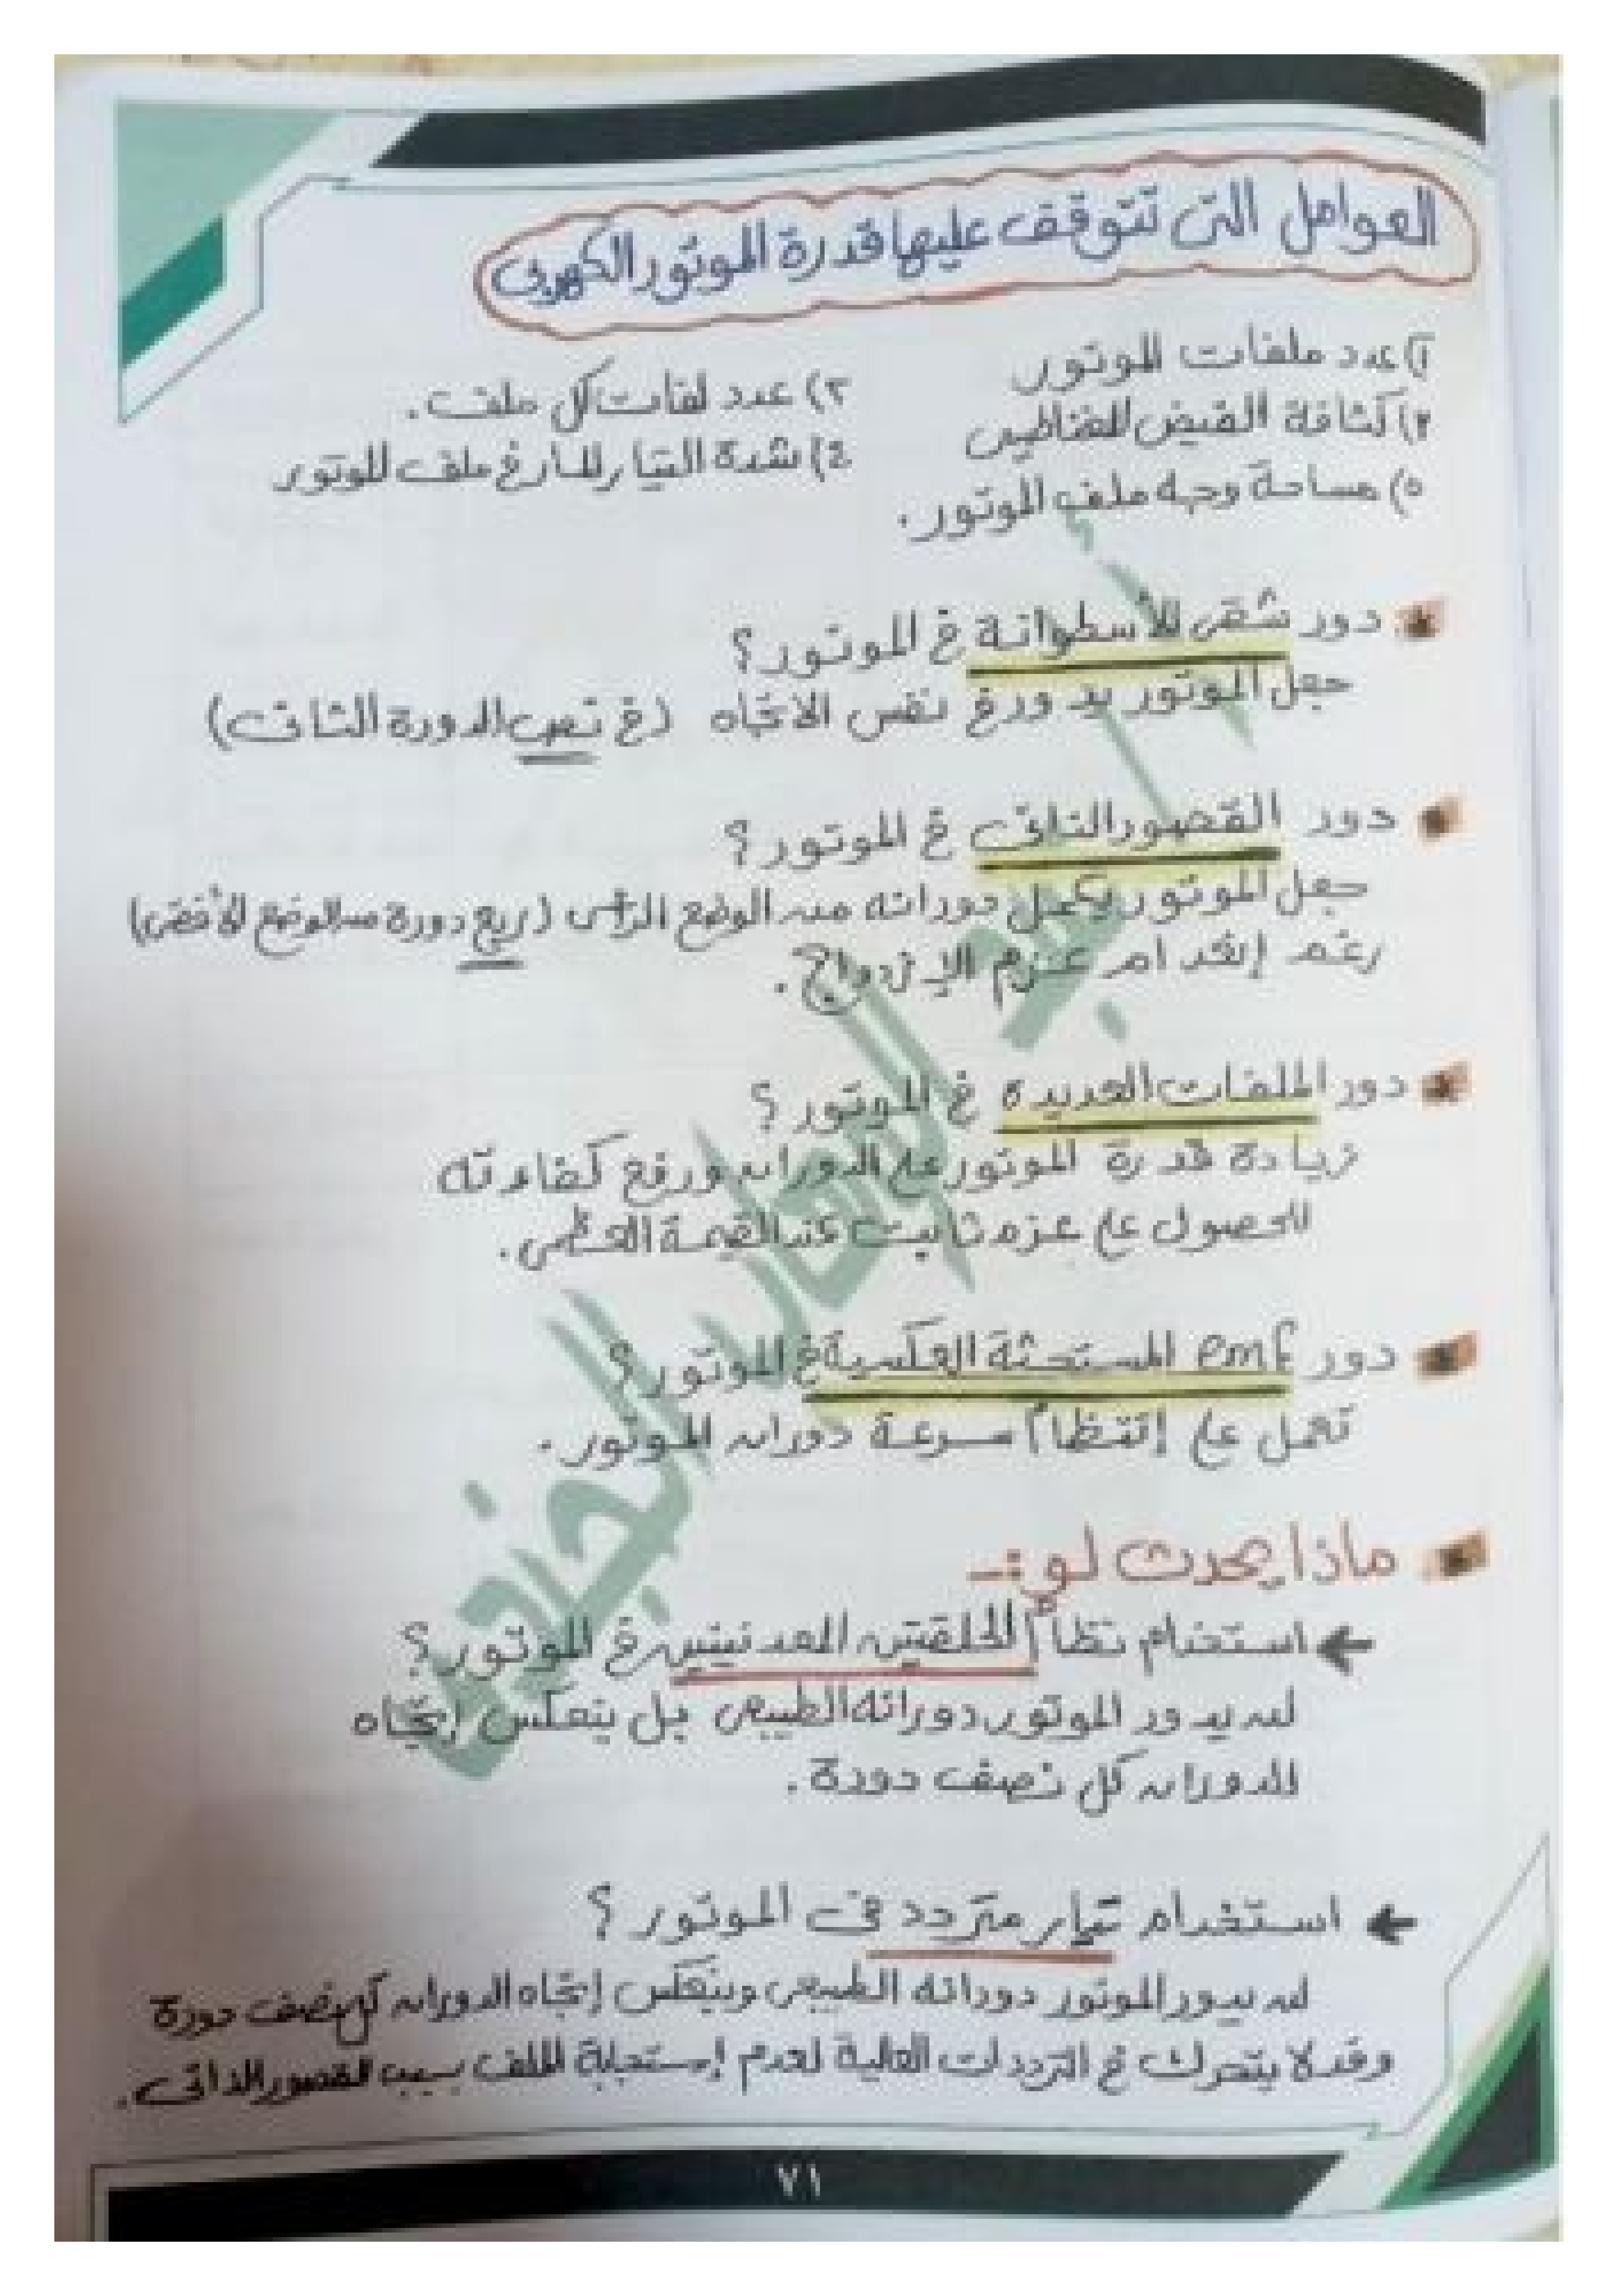 العوامل التى تتوقف عليها قدرة الموتور الكهربى
١) عدد ملفات الموتور
٢) عدد لفات كل ملف .
٣) كثافة الفيض المغناطيسى
٤) شدة التيار المار فى ملف الموتور
٥) مساحة وجه ملف الموتور .
دور شقى الأسطوانة فى الموتور ؟
جعل الموتور يدور فى نفس الاتجاه (فى نصف الدورة الثانى)
دور القصور الذاتى فى الموتور ؟
جعل الموتور يكمل دورانه من الوضع الرأسى (ربع دورة من الوضع الأفقى)
رغم إنعدام عزم الإزدواج .
دور الملفات العديدة فى الموتور ؟
زيادة قدرة الموتور على الدوران ورفع كفاءته
للحصول على عزم ثابت عند القيمة العظمى .
دور emf المستحثة العكسية فى الموتور ؟
تعمل على إنتظام سرعة دوران الموتور .
ماذا يحدث لو :-
← استخدام نظام الحلقتين المعدنيتين فى الموتور ؟
لن يدور الموتور دورانه الطبيعى بل ينعكس إتجاه
الدوران كل نصف دورة .
← استخدام تيار متردد فى الموتور ؟
لن يدور الموتور دورانه الطبيعى وينعكس إتجاه الدوران كل نصف دورة
وقد لا يتحرك فى الترددات العالية لعدم إستجابة الملف بسبب القصور الذاتى .
٧١